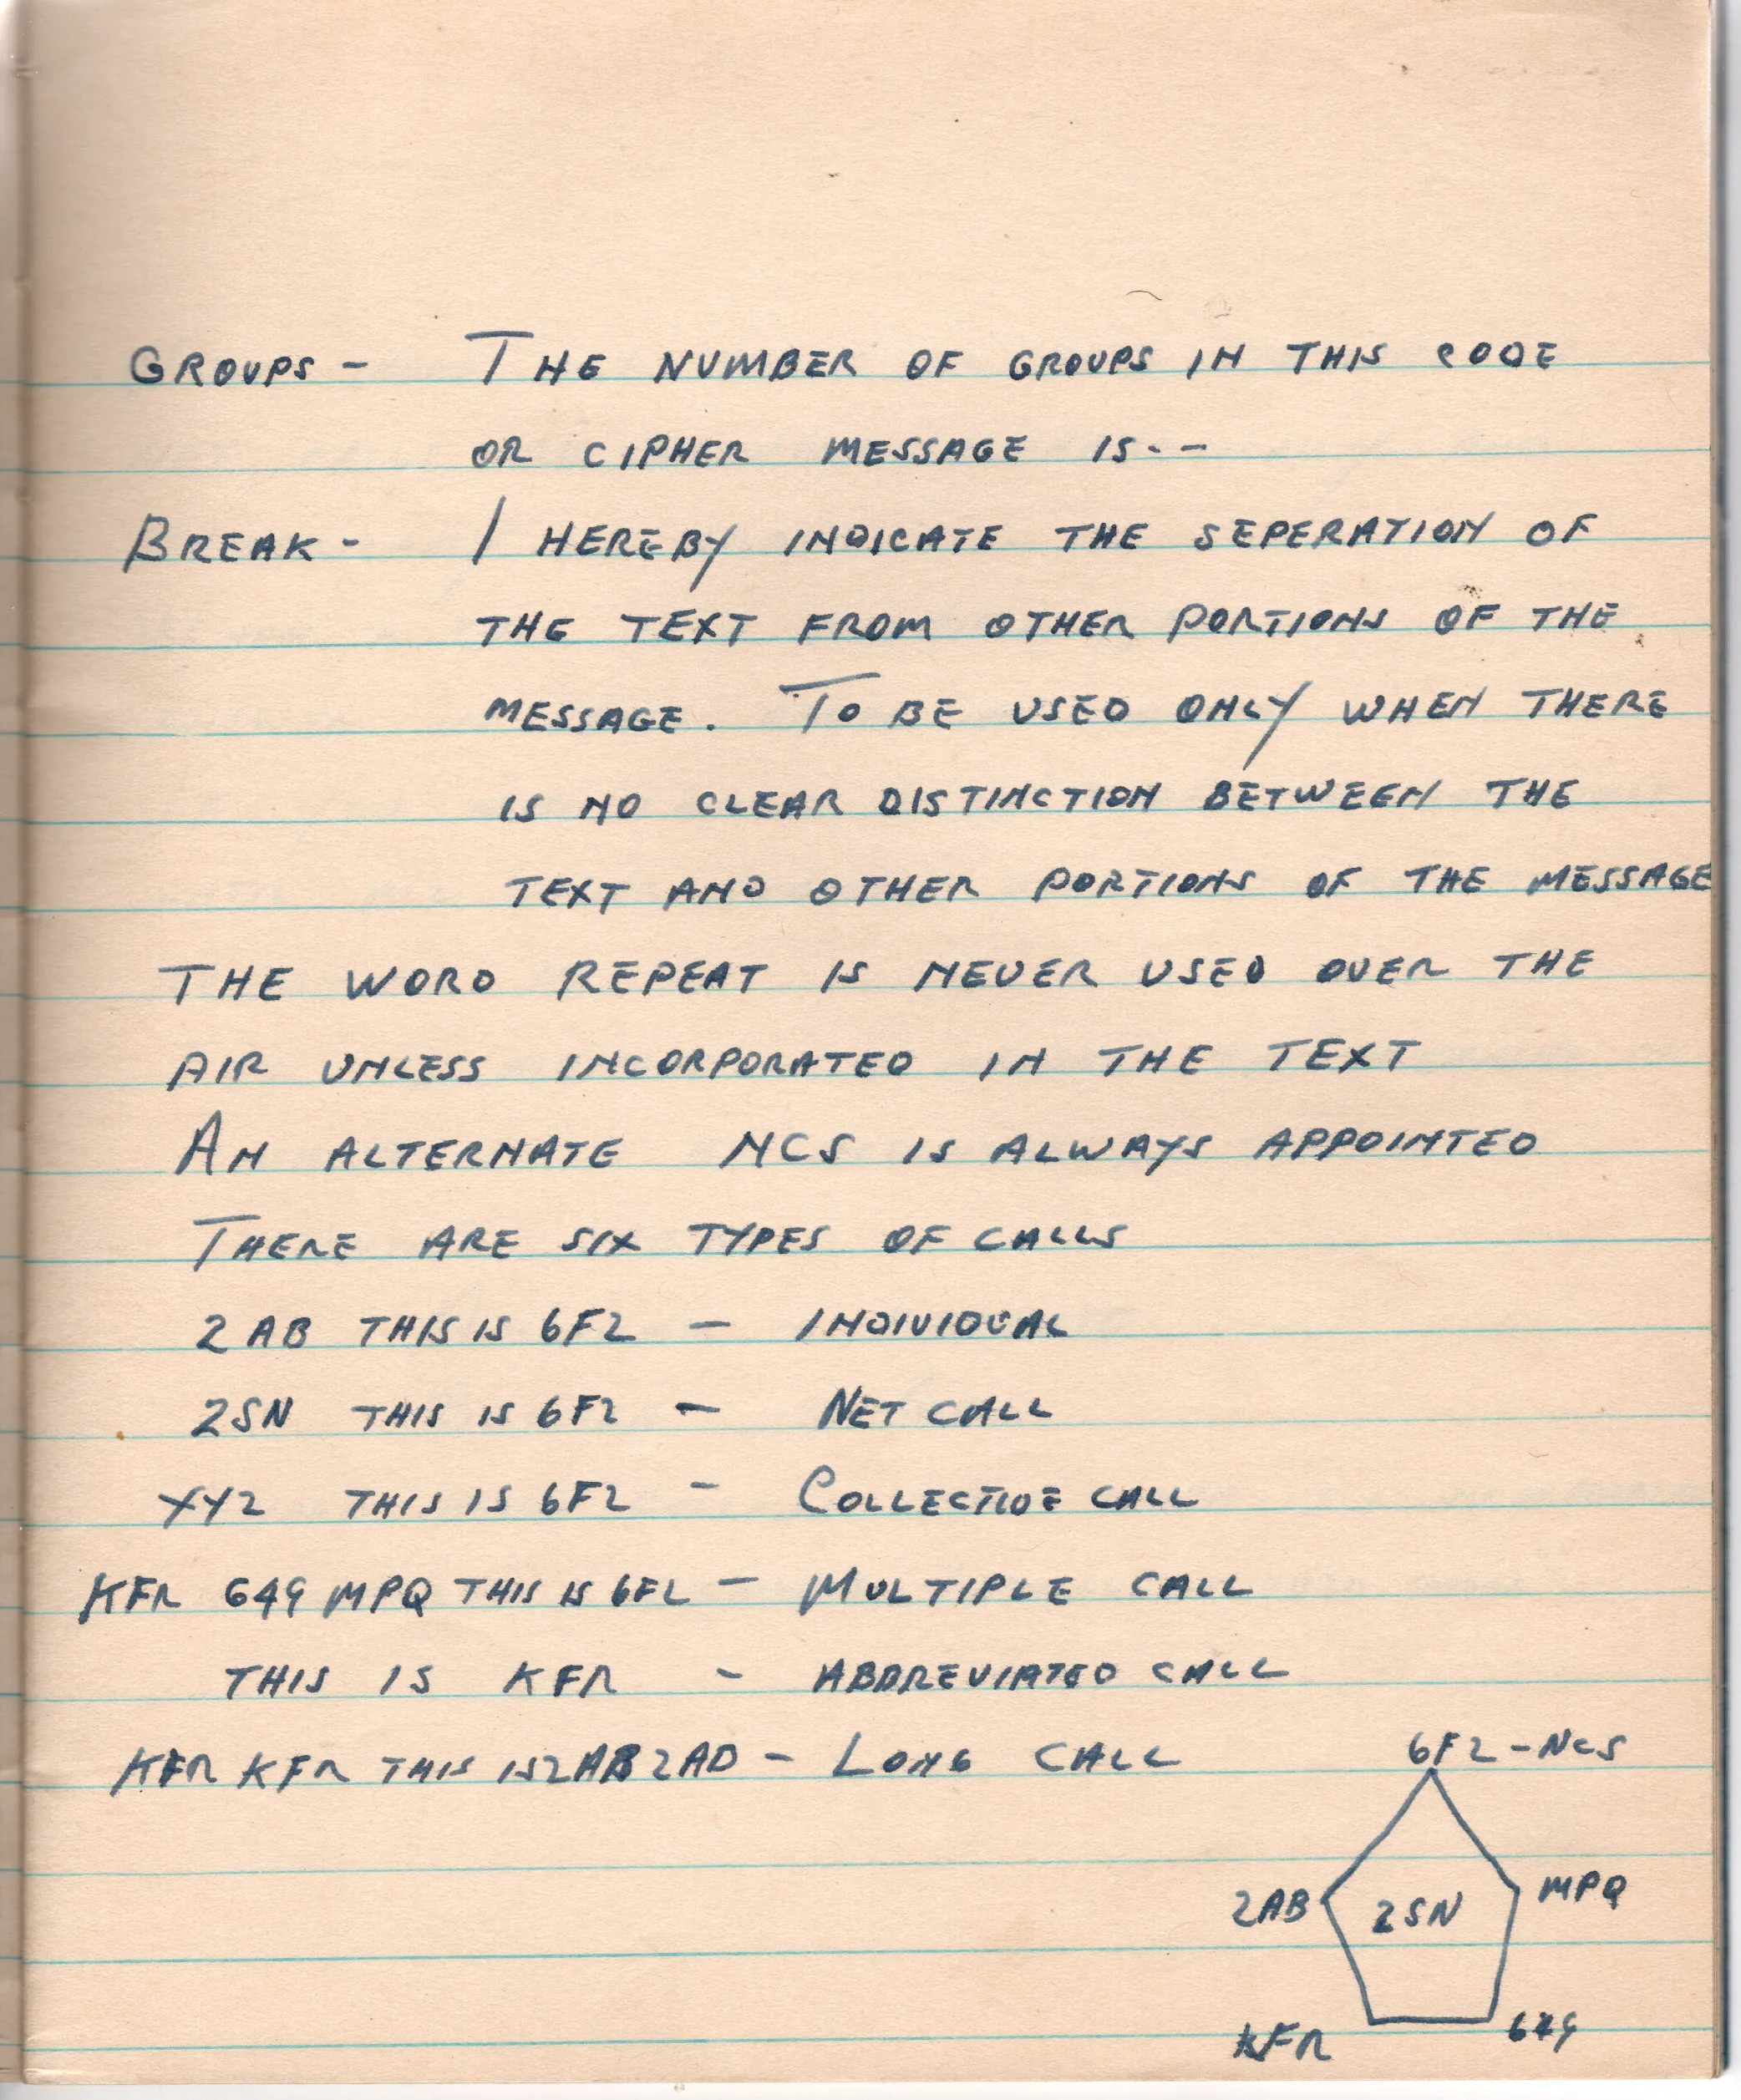 GROUPS - THE NUMBER OF GROUPS IN THIS CODE
OR CIPHER MESSAGE IS - -
BREAK - I HEREBY INDICATE THE SEPERATION OF
THE TEXT FROM OTHER PORTIONS OF THE
MESSAGE. TO BE USED ONLY WHEN THERE
IS NO CLEAR DISTINCTION BETWEEN THE
TEXT AND OTHER PORTIONS OF THE MESSAGE
THE WORD REPEAT IS NEVER USED OVER THE
AIR UNLESS INCORPORATED IN THE TEXT
AN ALTERNATE NCS IS ALWAYS APPOINTED
THERE ARE SIX TYPES OF CALLS
2AB THIS IS 6F2 - INDIVIDUAL
2SN THIS IS 6F2 - NET CALL
XYZ THIS IS 6F2 - COLLECTIVE CALL
KFR 649 MPQ THIS IS 6F2 - MULTIPLE CALL
THIS IS KFR - ABBREVIATED CALL
KFR KFR THIS IS 2AB 2AB - LONG CALL
6F2 - NCS
2AB 2SN MPQ
KFR 649